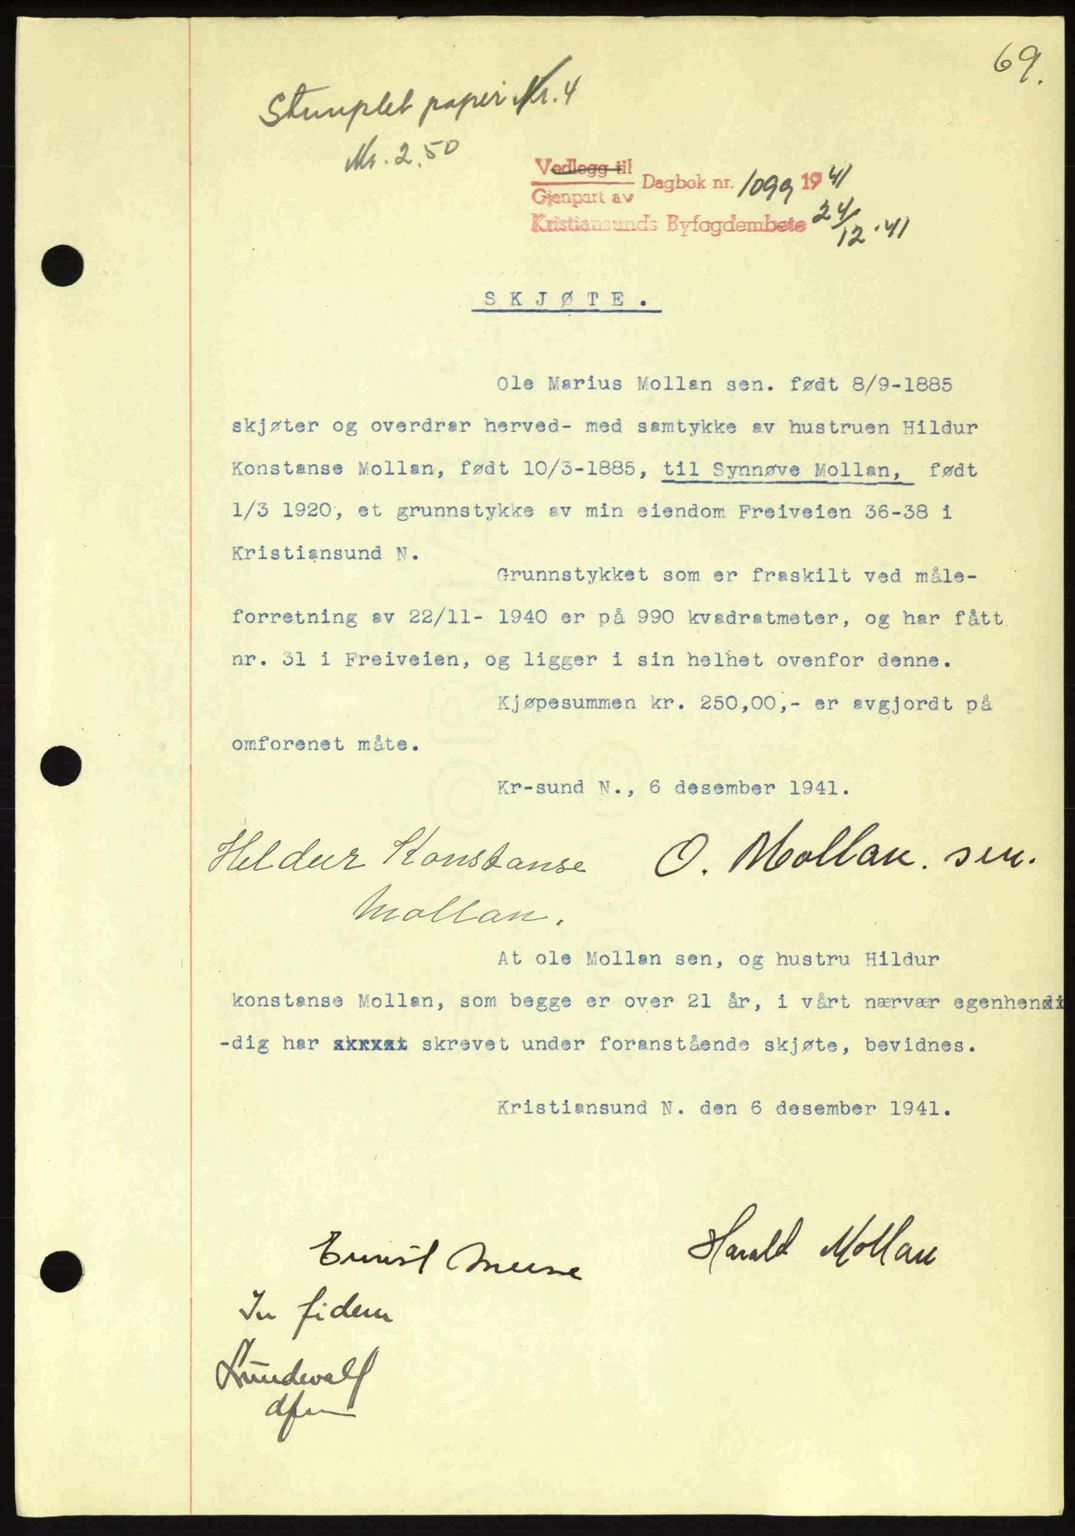 69.
Stemplet papir Nr. 4
Kr. 2.50
Vedlegg til
Gjenpart av
Dagbok nr. 1099 1941
Kristiansunds Byfogdembete 24/12-41
SKJØTE.
Ole Marius Mollan sen. født 8/9-1885
skjøter og overdrar herved- med samtykke av hustruen Hildur
Konstanse Mollan, født 10/3-1885, til Synnøve Mollan, født
1/3 1920, et grunnstykke av min eiendom Freiveien 36-38 i
Kristiansund N.
Grunnstykket som er fraskilt ved måle-
forretning av 22/11- 1940 er på 990 kvadratmeter, og har fått
nr. 31 i Freiveien, og ligger i sin helhet ovenfor denne.
Kjøpesummen kr. 250,00,- er avgjordt på
omforenet måte.
Kr-sund N., 6 desember 1941.
Hildur Konstanse O. Mollan. sen.
Mollan.
At ole Mollan sen, og hustru Hildur
konstanse Mollan, som begge er over 21 år, i vårt nærvær egenhendi
-dig har skrevet under foranstående skjøte, bevidnes.
Kristiansund N. den 6 desember 1941.
Harald Mollan
In fidem